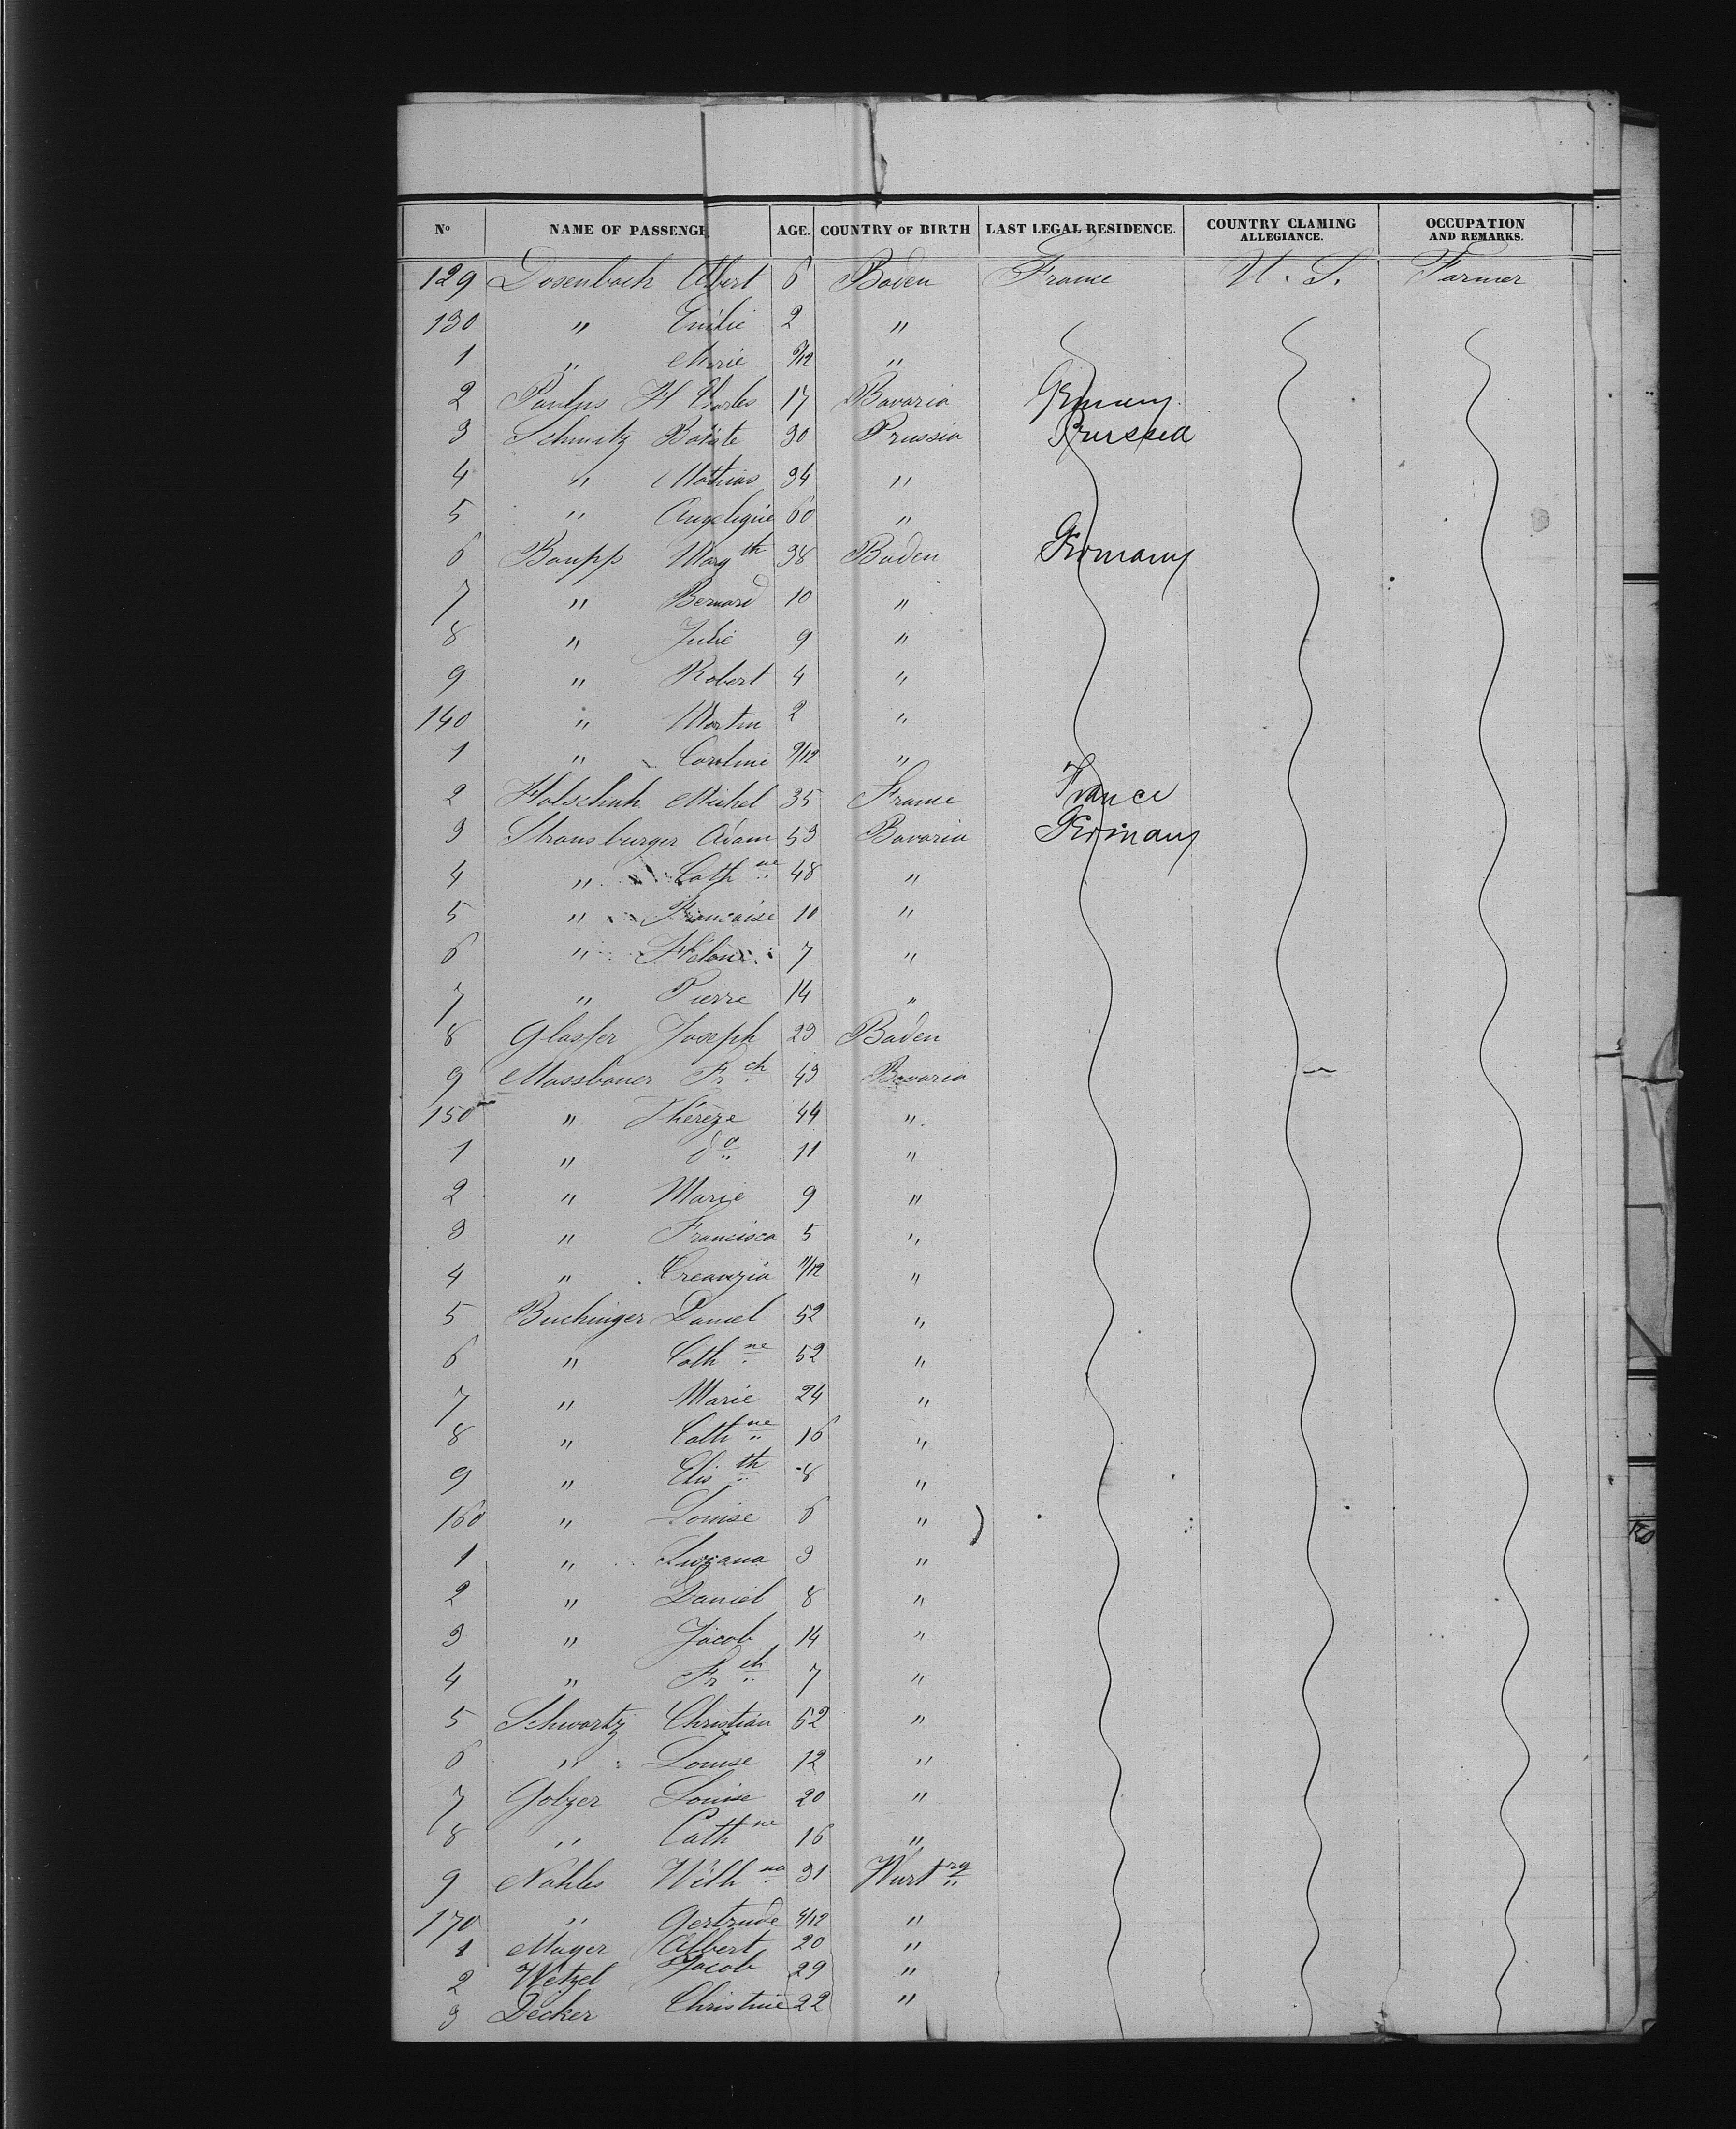 No NAME OF PASSENGE AGE. COUNTRY OF BIRTH LAST LEGAL RESIDENCE. COUNTRY CLAMING ALLEGIANCE. OCCUPATION AND REMARKS.
129 Dosenbach Albert 6 Baden France U. S. Farmer
130 " Emilie 2 "
1 " Marie "
2 Paulus H Charles 17 Bavaria Germany
3 Schmitz Batiste 30 Prussia Prussia
4 " Mathias 34 "
5 " Angelique 60 "
6 Baupp Marg th 38 Baden Germany
7 " Bernard 10 "
8 " Julie 9 "
9 " Robert 4 "
140 " Martin 2 "
1 " Caroline 9/12 "
2 Holschuh Michel 35 France France
3 Strausburger Adam 53 Bavaria Germany
4 " Cath ne 48 "
5 " Francaise 10 "
6 " 7 "
7 " Pierre 14 "
8 Glasser Joseph 23 Baden
9 Massbauer Fr ch 43 Bavaria
150 " Thérèze 44 "
1 " do 11 "
2 " Marie 9 "
3 " Francisca 5 "
4 " 11/12 "
5 Buchinger Daniel 52 "
6 " Cath ne 52 "
7 " Marie 24 "
8 " Cath ne 16 "
9 " Elis th 8 "
160 " Louise 6 "
1 " Suzana 3 "
2 " Daniel 8 "
3 " Jacob 14 "
4 " Fr ch 7 "
5 Schwartz Christian 52 "
6 " Louise 12 "
7 Golzer Louise 20 "
8 " Cath ne 16 "
9 Nahles Wilh na 31 Wurt rg
170 " Gertrude 4/12 "
1 Mayer Albert 20 "
2 Wetzel Jacob 29 "
3 Decker Christine 22 "